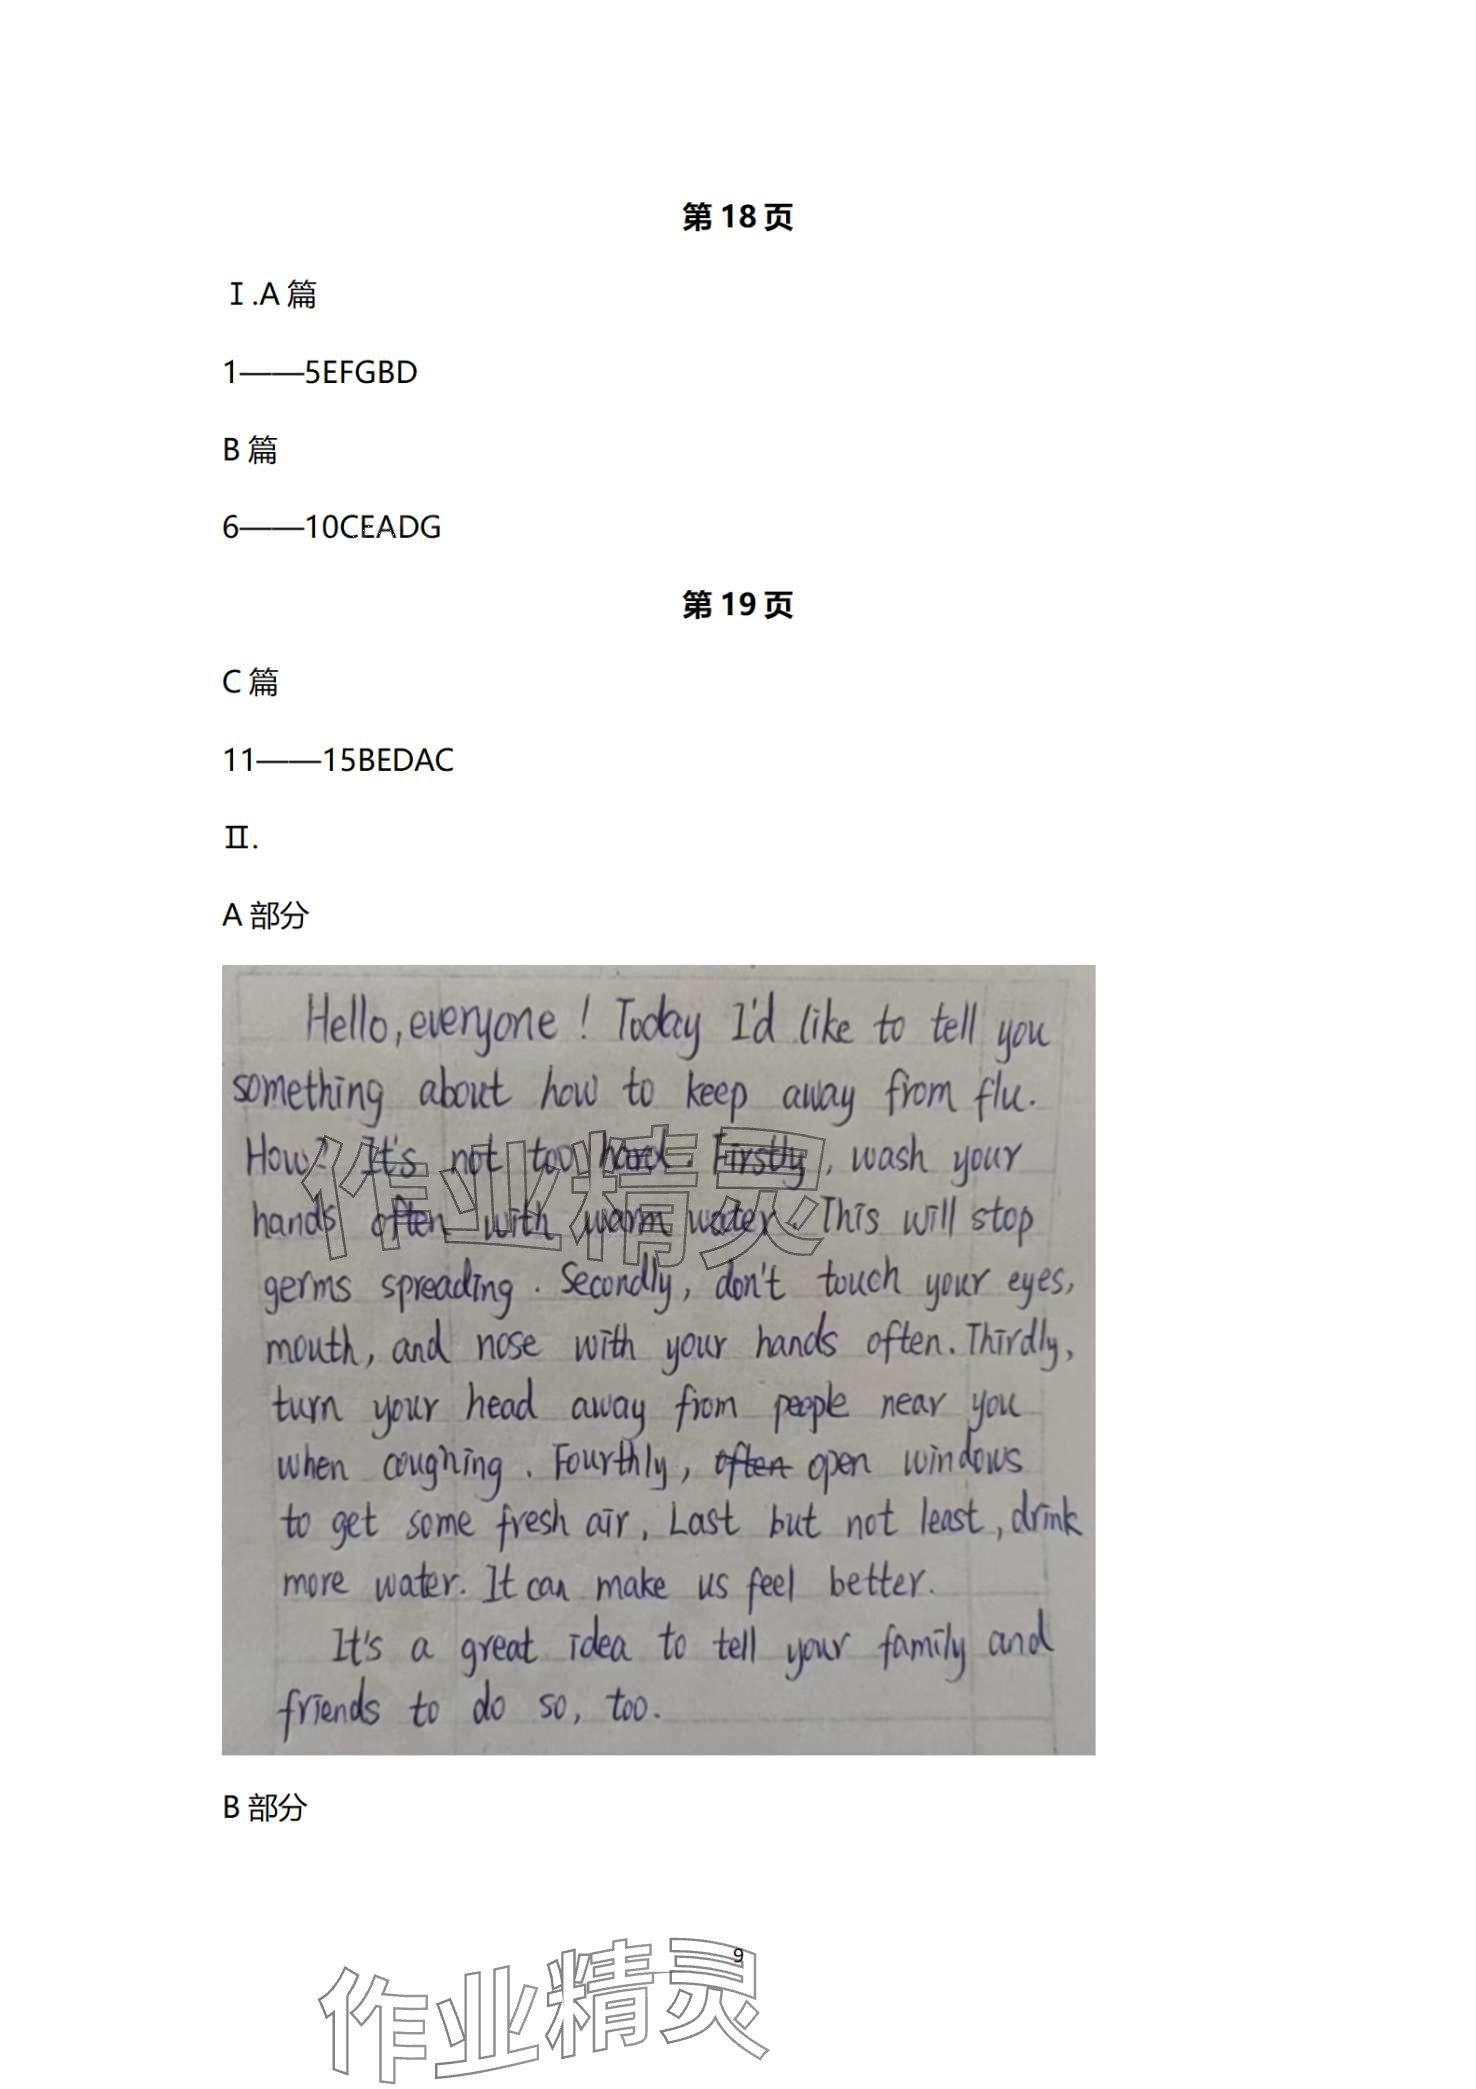 第18页
Ⅰ.A篇
1——5EFGBD
B篇
6——10CEADG
第19页
C篇
11——15BEDAC
Ⅱ.
A部分
Hello, everyone! Today I'd like to tell you
something about how to keep away from flu.
How? It's not too hard. Firstly, wash your
hands often with warm water. This will stop
germs spreading. Secondly, don't touch your eyes,
mouth, and nose with your hands often. Thirdly,
turn your head away from people near you
when coughing. Fourthly, often open windows
to get some fresh air. Last but not least, drink
more water. It can make us feel better.
It's a great idea to tell your family and
friends to do so, too.
作业精灵
B部分
9
作业精灵